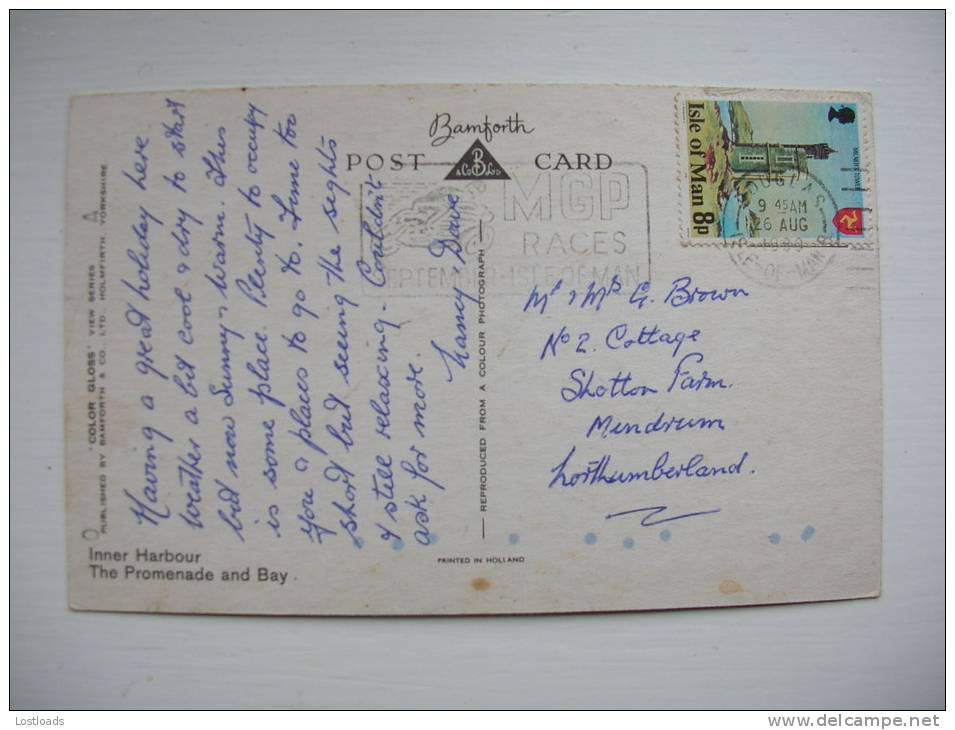 Bamforth
POST CARD
B
& Co Ltd
MGP
RACES
SEPTEMBER · ISLE OF MAN
Isle of Man 8p
9 45AM
26 AUG
ISLE-OF-MAN
'COLOR GLOSS' VIEW SERIES
PUBLISHED BY BAMFORTH & CO., LTD., HOLMFIRTH, YORKSHIRE
Having a great holiday here
Weather a bit cool & dry to start
but now Sunny & Warm. This
is some place. Plenty to occupy
you & places to go to. Time too
short but seeing the sights
& still relaxing. Couldn't
ask for more.
Nancy Dave
REPRODUCED FROM A COLOUR PHOTOGRAPH
Mr & Mrs G. Brown
No 2. Cottage
Shotton Farm.
Mindrum
Northumberland.
Inner Harbour
The Promenade and Bay
PRINTED IN HOLLAND
Lostloads
www.delcampe.net